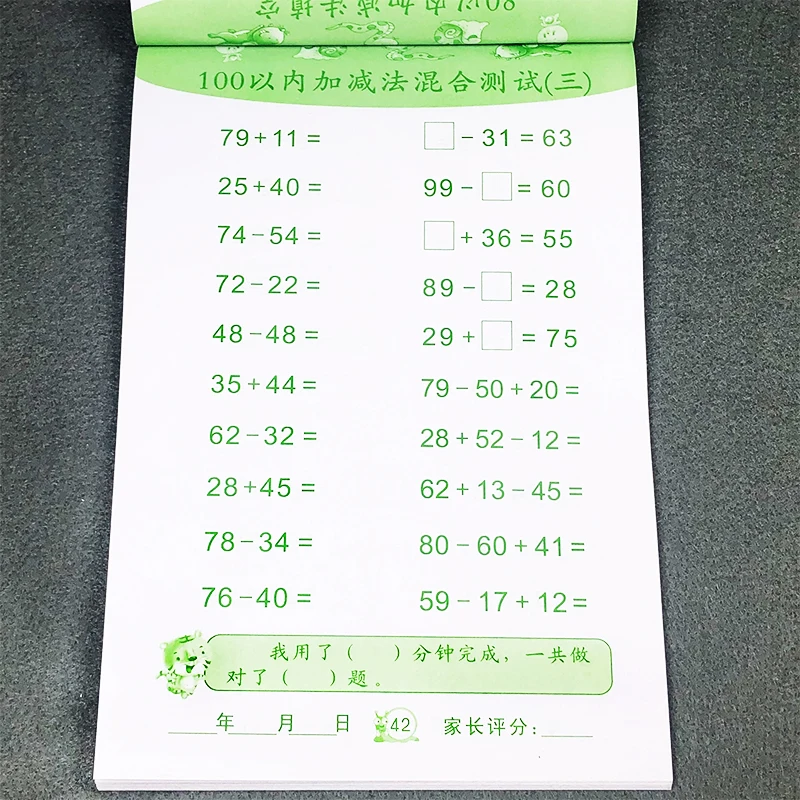 80以内加减法填空
100以内加减法混合测试(三)
79+11=
□-31=63
25+40=
99-□=60
74-54=
□+36=55
72-22=
89-□=28
48-48=
29+□=75
35+44=
79-50+20=
62-32=
28+52-12=
28+45=
62+13-45=
78-34=
80-60+41=
76-40=
59-17+12=
我用了（ ）分钟完成，一共做
对了（ ）题。
____年____月____日 42 家长评分:____